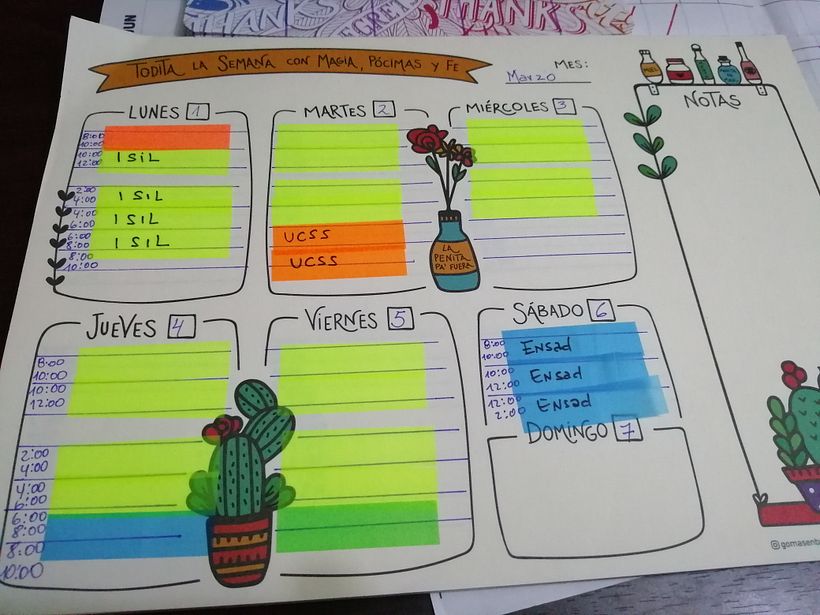 THANKS
SECRET
THANKS
TODITA LA SEMANA CON MAGIA, PÓCIMAS Y FE
MES:
Marzo
LUNES 1
8:00
10:00
10:00
12:00
ISIL
2:00
4:00
ISIL
4:00
6:00
ISIL
6:00
8:00
ISIL
8:00
10:00
MARTES 2
UCSS
UCSS
MIÉRCOLES 3
LA
PENITA
PA' FUERA
MIEL
NOTAS
JUEVES 4
8:00
10:00
10:00
12:00
2:00
4:00
4:00
6:00
6:00
8:00
8:00
10:00
VIERNES 5
SÁBADO 6
8:00
10:00
Ensad
10:00
12:00
Ensad
12:00
2:00
Ensad
DOMINGO 7